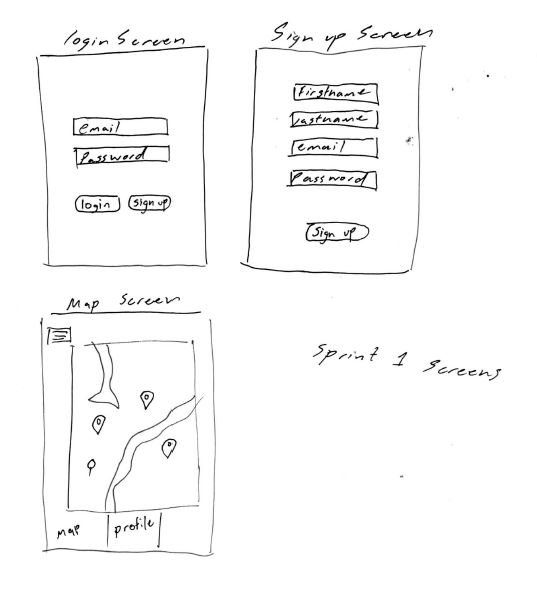 login Screen
email
Password
login
sign up
Sign up Screen
Firstname
Lastname
email
Password
Sign up
Map Screen
Map
profile
Sprint 1 Screens